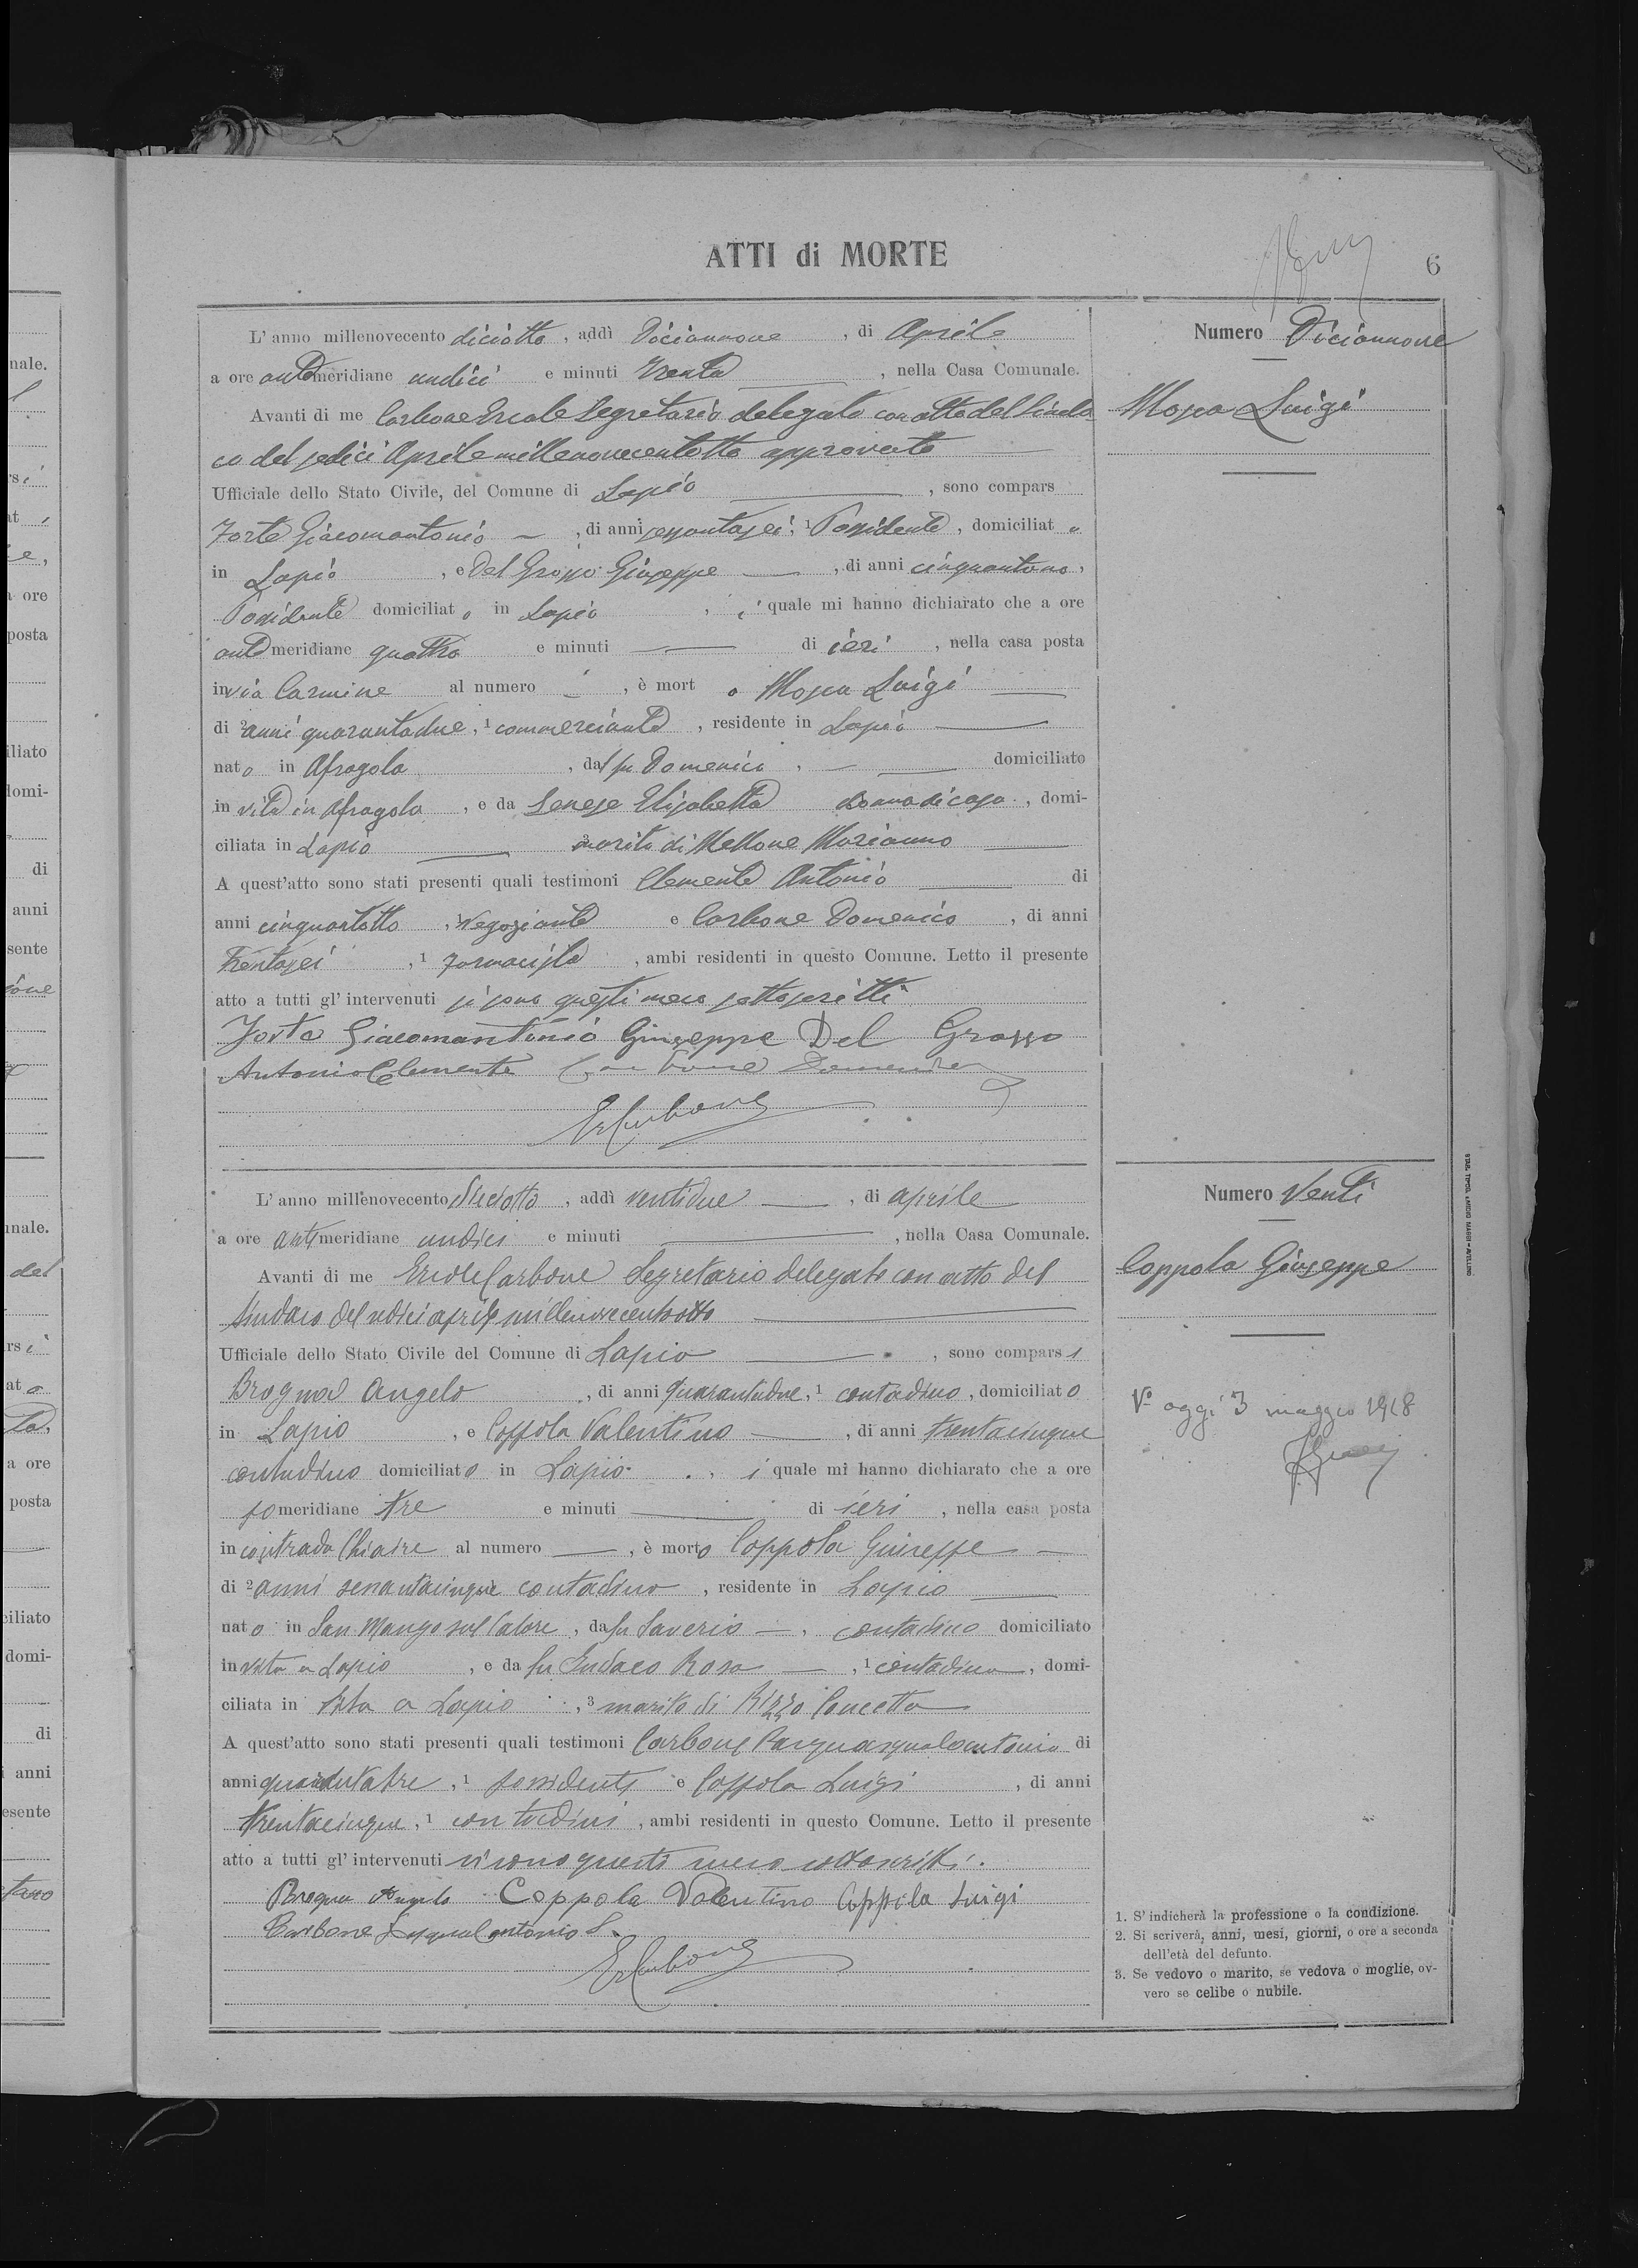 ATTI di MORTE
6
L'anno millenovecento diciotto, addì Diciannove, di Aprile
a ore antemeridiane undici e minuti trenta, nella Casa Comunale.
Avanti di me Carbone Ercole Segretario delegato con atto del Sinda-
co del sedici Aprile millenovecentotto approvato
Ufficiale dello Stato Civile, del Comune di Lapio, sono compars
Forte Giacomantonio, di anni sessantasei, 1 Possidente, domiciliato
in Lapio, e Del Grosso Giuseppe, di anni cinquantuno,
Possidente domiciliato in Lapio, i quale mi hanno dichiarato che a ore
antemeridiane quattro e minuti — di ieri, nella casa posta
in via Carmine al numero —, è morto Mosca Luigi
di 2 anni quarantadue, 1 commerciante, residente in Lapio
nato in Afragola, dal fu Domenico, — domiciliato
in vita in Afragola, e da Senese Elisabetta donna di casa, domi-
ciliata in Lapio 3 marito di Mellone Marianna
A quest'atto sono stati presenti quali testimoni Clemente Antonio di
anni cinquantotto, 1 Negoziante e Carbone Domenico, di anni
trentasei, 1 farmacista, ambi residenti in questo Comune. Letto il presente
atto a tutti gl'intervenuti si sono questi meco sottoscritti
Forte Giacomantonio Giuseppe Del Grosso
Antonio Clemente Carbone Domenico
E Carbone
Numero Diciannove
Mosca Luigi
L'anno millenovecento diciotto, addì ventidue, di aprile
a ore antimeridiane undici e minuti —, nella Casa Comunale.
Avanti di me Ercole Carbone Segretario delegato con atto del
Sindaco del sedici aprile millenovecentotto
Ufficiale dello Stato Civile del Comune di Lapio, sono comparsi
Brogna Angelo, di anni quarantadue, 1 contadino, domiciliato
in Lapio, e Coppola Valentino, di anni trentacinque
contadino domiciliato in Lapio, i quale mi hanno dichiarato che a ore
pomeridiane tre e minuti — di ieri, nella casa posta
in contrada Chiaire al numero —, è morto Coppola Giuseppe
di 2 anni sessantacinque contadino, residente in Lapio
nato in San Mango sul Calore, da fu Saverio, contadino domiciliato
in vita a Lapio, e da fu Rosa, 1 contadina, domi-
ciliata in vita a Lapio, 3 marito di Rizzo Concetta
A quest'atto sono stati presenti quali testimoni Carbone di
anni quarantatre, 1 possidente e Coppola Luigi, di anni
trentacinque, 1 contadini, ambi residenti in questo Comune. Letto il presente
atto a tutti gl'intervenuti si sono questi meco sottoscritti.
Brogna Angelo Coppola Valentino Coppola Luigi
Carbone Pasqualantonio
E Carbone
Numero Venti
Coppola Giuseppe
Vo oggi 3 maggio 1918
1. S'indicherà la professione o la condizione.
2. Si scriverà, anni, mesi, giorni, o ore a seconda
dell'età del defunto.
3. Se vedovo o marito, se vedova o moglie, ov-
vero se celibe o nubile.